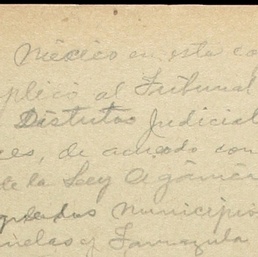 México en esta co
plico al Tribunal
Distritos Judicial
es, de acuerdo con
de la Ley Orgánic
Municipio
y Tamazula